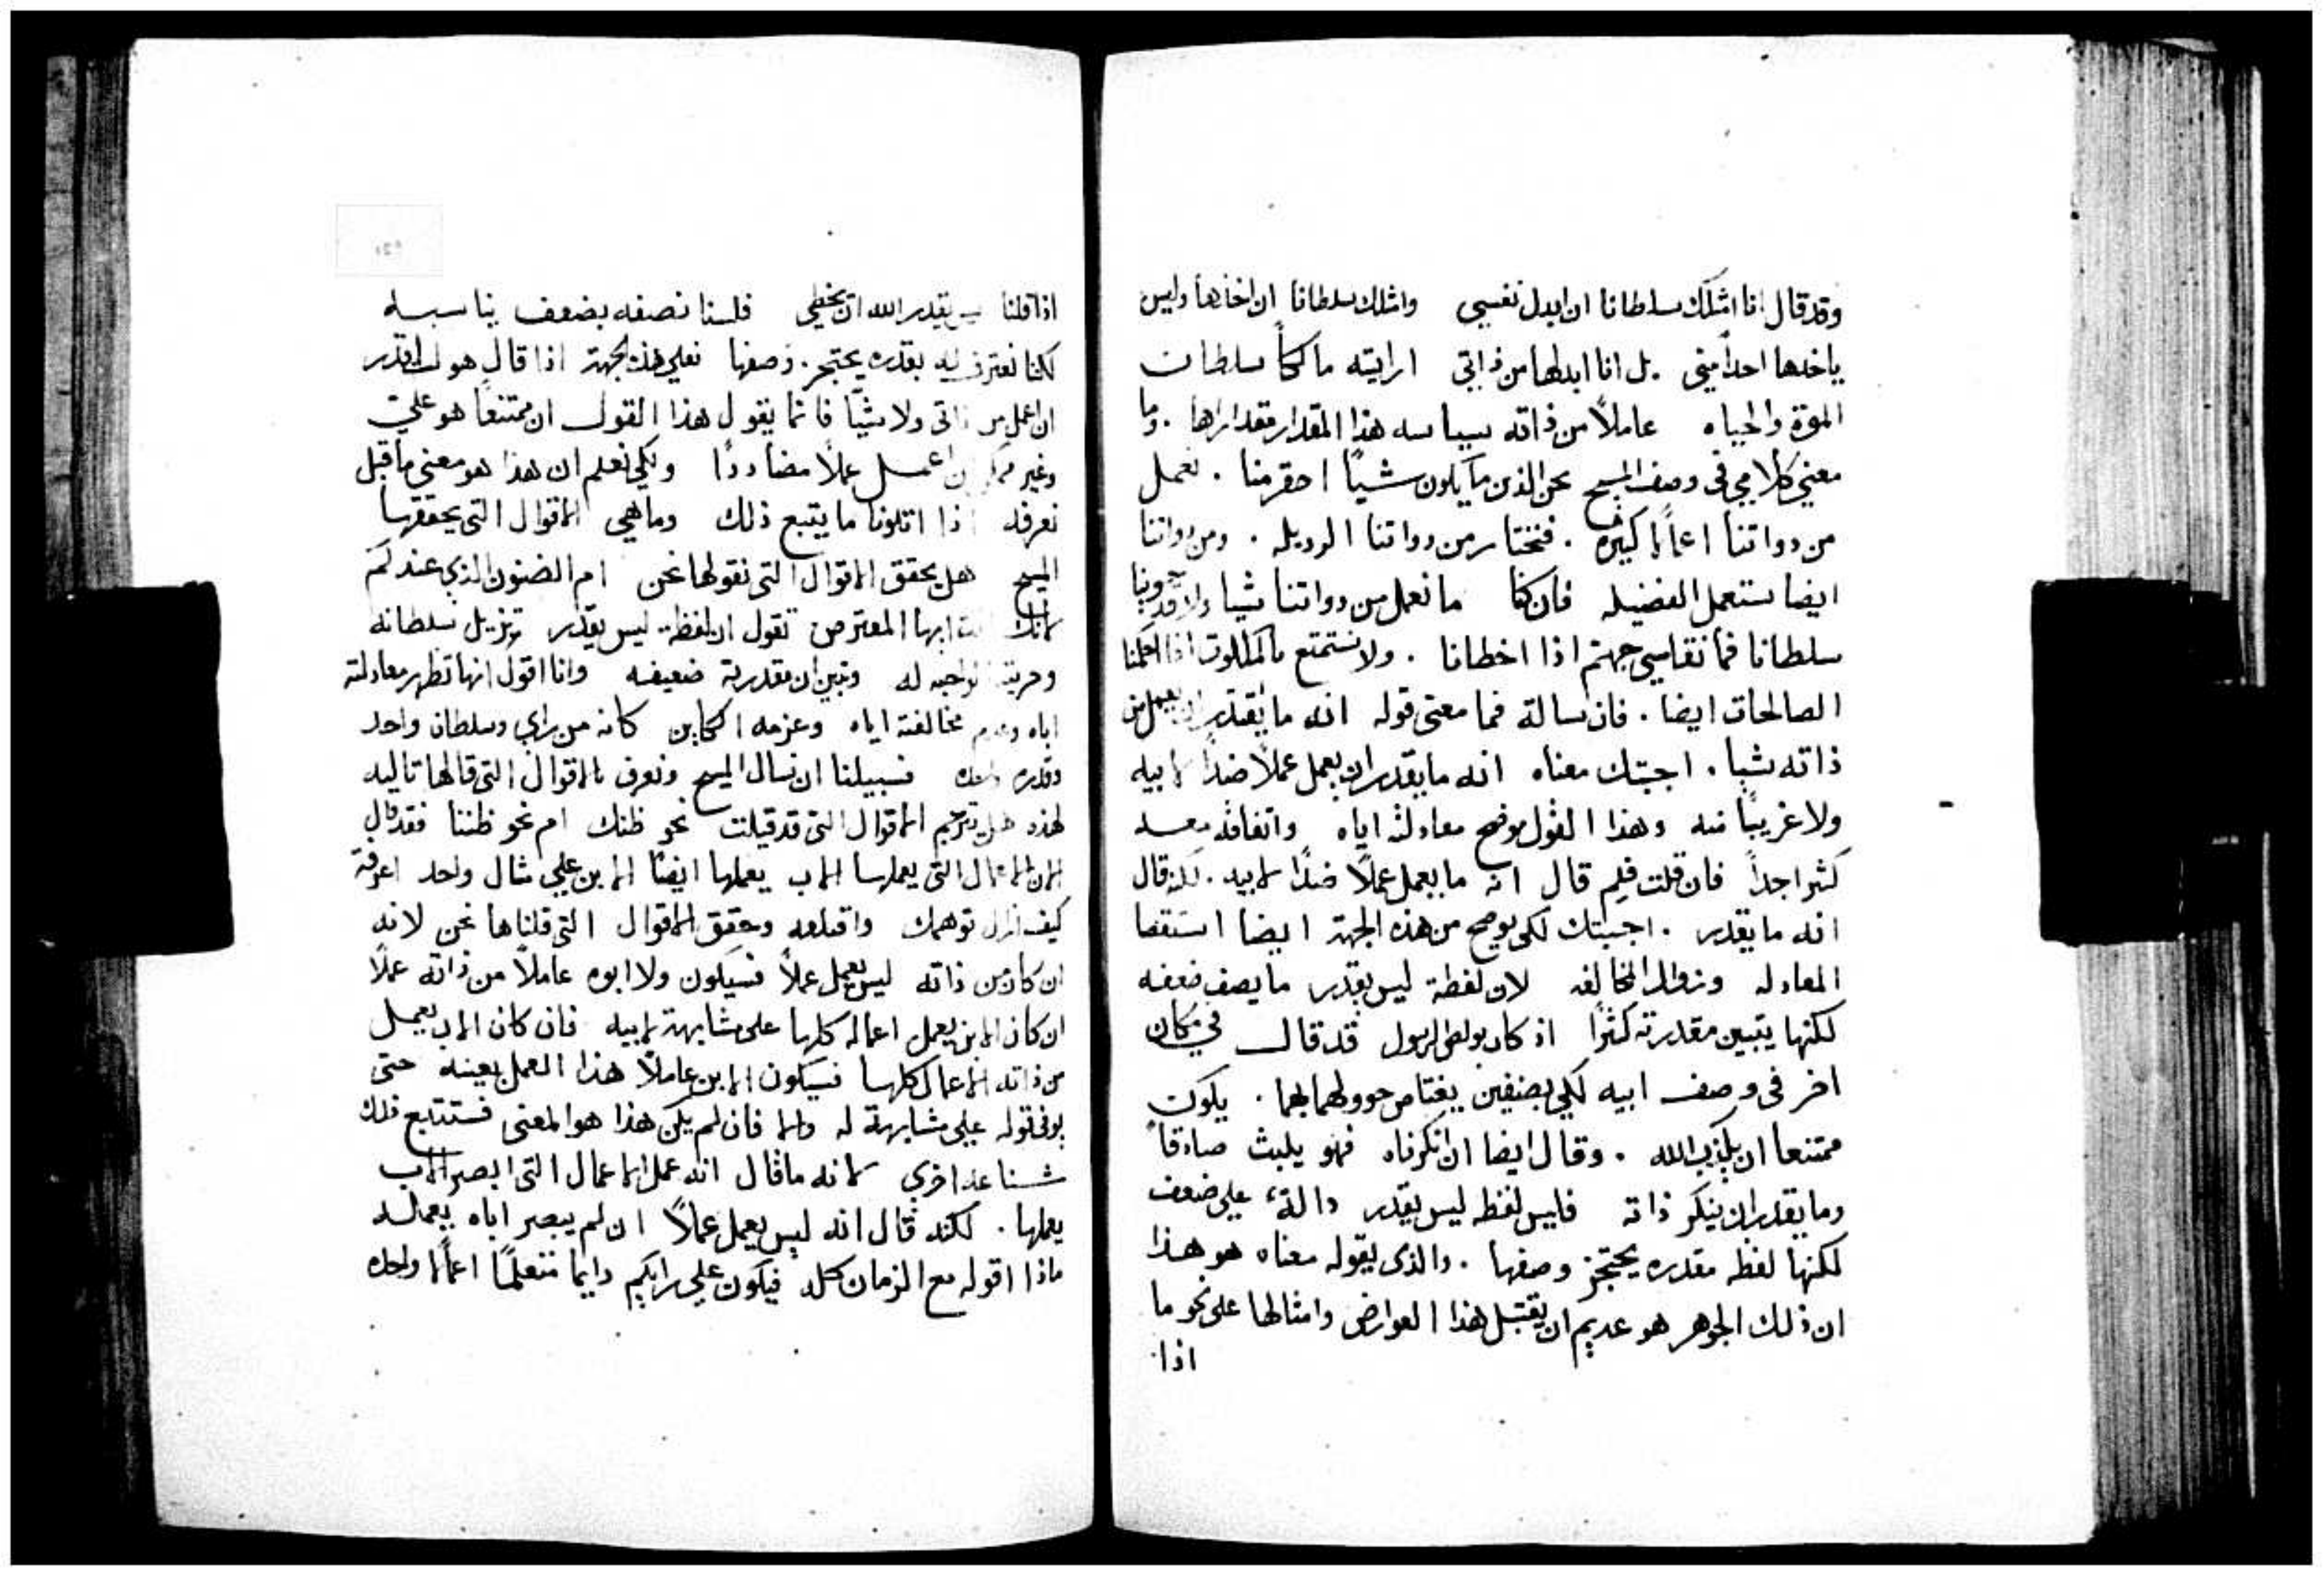 وقد قال انا امتلك سلطانا ان ابدل نفسي وامتلك سلطانا ان اخذها وليس
ياخدها احدا مني . بل انا ابدلها من ذاتي ارايته مالكاً سلطان
الموة والحياه عاملاً من ذاته سياسه هذا المقدار مقدارها . وما
معني كلامي في وصف المسيح نحن الذين ما يكون شياً احقر منا . نعمل
من دواتنا اعمالا كثيره . فنختار من دواتنا الرديله . ومن دواتنا
ايضا نستعمل الفضيله فان كنا ما نعمل من دواتنا شيا ولا
سلطانا فما نقاسي جهنم اذا اخطانا . ولا نستمتع بالملكوت اذا احكمنا
الصالحات ايضا . فان سالة فما معنى قوله انه ما يقتدر ان يعمل من
ذاته شيا . اجبتك معناه انه ما يقدر ان يعمل عملاً ضداً لابيه
ولا غريباً منه وهذا القول موضح معادلته اياه واتفاقه معه
كثيرا جداً فان قلت فلم قال انه ما يعمل عملاً ضداً لابيه . لكنه قال
انه ما يقدر . اجبتك لكي يوضح من هذه الجهة ايضا استقصا
المعادله وزوال المخالفه لان لفظة ليس يقدر ما يصف ضعفه
لكنها يتبين مقدرته كثيرا اذ كان بولص الرسول قد قال في مكان
اخر في وصف ابيه لكي بصنفين يعتاص حوولهما بهما . يكون
ممتنعا ان يكذب الله . وقال ايضا ان انكرناه فهو يلبث صادقاً
وما يقدر ان ينكر ذاته فليس لفظه ليس يقدر دالة علي ضعف
لكنها لفظه مقدره يحتجز وصفها . والذي يقوله معناه هو هذا
ان ذلك الجوهر هو عديم ان يقتبل هذا العوارض وامثالها على نحو ما
اذا
اذا قلنا ليس يقدر الله ان يخطي فلسنا نصفه بضعف يناسبه
لكنا نعترف له بقدره يحتجز وصفها فعلي هذه الجهة اذا قال هو لست اقدر
ان اعمل من ذاتي ولا شيا فانما يقول هذا القول ان ممتنعا هو عليّ
وغير ممكن ان اعمل عملاً مضاددا ولكي نعلم ان هذا هو معني ما قيل
نعرفه اذا اتلونا ما يتبع ذلك وما هي الاقوال التي يحققها
المسيح هل يحقق الاقوال التي نقولها نحن ام الضنون الذي عندكم
لانك انت ايها المعترض تقول ان لفظة ليس يقدر تزيل سلطانه
وحريته الواجبه له وتبين ان مقدرته ضعيفه وانا اقول انها تظهر معادلته
اياه وعدم مخالفته اياه وعزمه الكاين كانه من راي وسلطان واحد
وقدره واحده فسبيلنا ان نسال المسيح ونعرف بالاقوال التي قالها تاليه
لهذه هل ترجم الاقوال التي قد قيلت نحو ظنك ام نحو ظننا فقد قال
لان الاعمال التي يعملها الاب يعملها ايضاً الابن علي مثال واحد اعرفة
كيف ازال توهمك واقتلعه وحقق الاقوال التي قلناها نحن لانه
ان كان من ذاته ليس يعمل عملاً فسيكون ولا ابوه عاملاً من ذاته عملاً
ان كان الابن يعمل اعماله كلها على مشابهة لابيه فان كان الاب يعمل
من ذاته الاعمال كلها فسيكون الابن عاملاً هذا العمل بعينه حتى
يوفي قوله علي مشابهة له والا فان لم يكن هذا هو المعنى فستتبع ذلك
شناعه اخري لانه ما قال انه عمل الاعمال التي ابصر الاب
يعملها . لكنه قال انه ليس يعمل عملاً ان لم يبصر اباه يعمله
ماذا اقوله مع الزمان كله فيكون علي رايكم دايما متعلماً اعمالا واحده